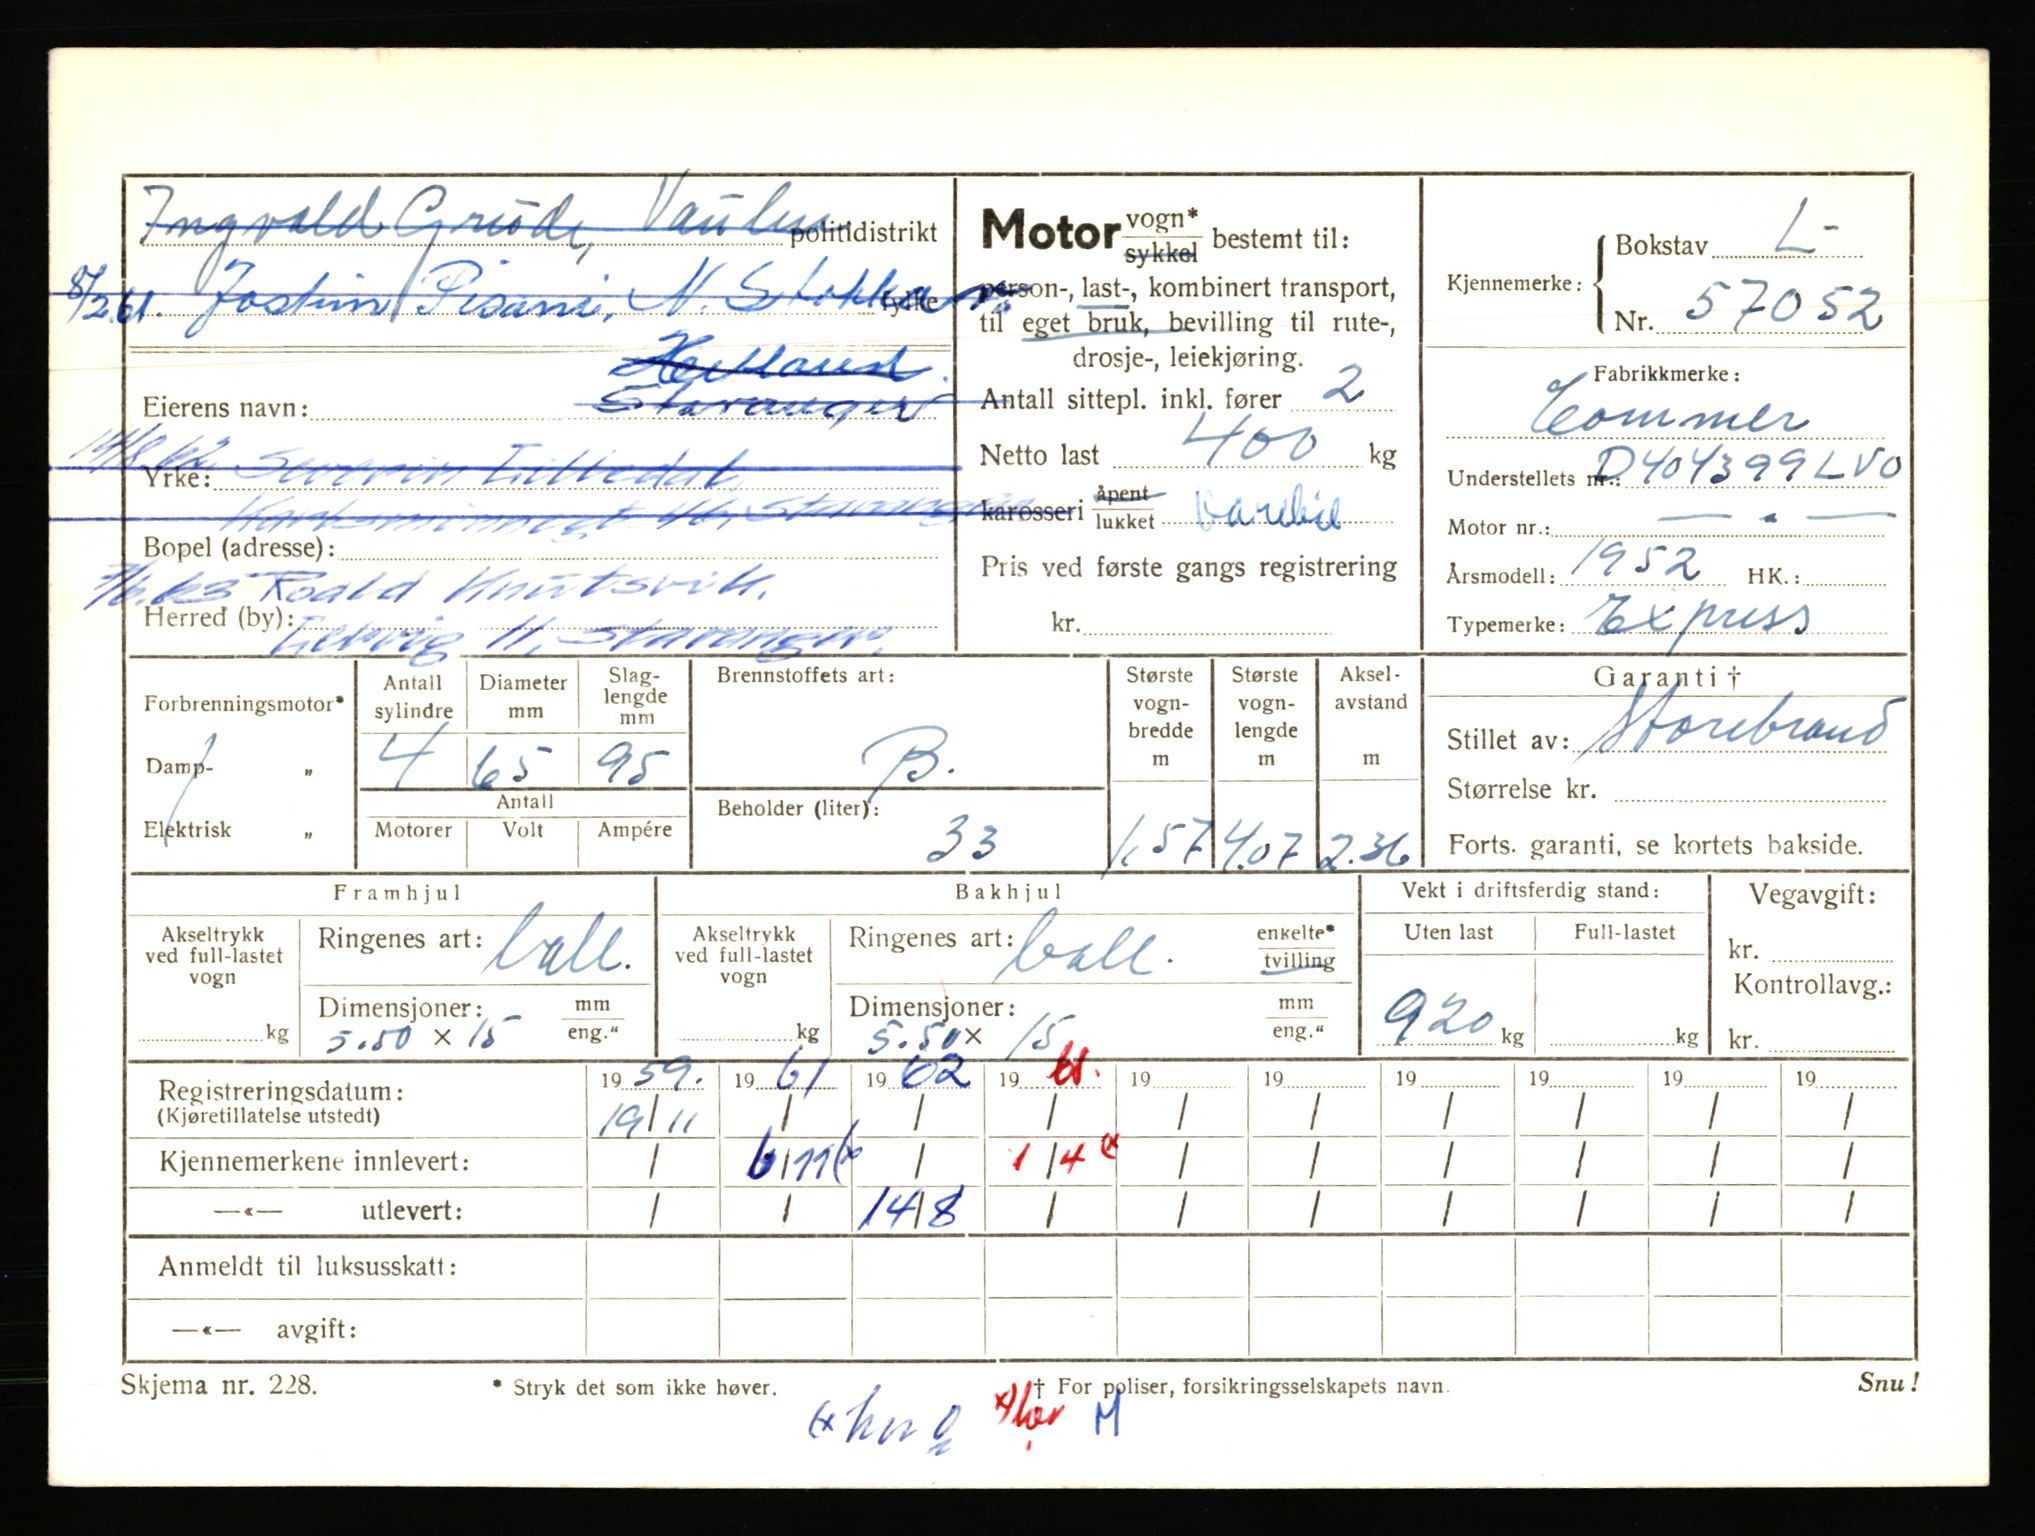 Ingvald Grude, politidistrikt
8/2.61. Jostein Pisani, N. Stokka fylke
Hetland.
Eierens navn: Stavanger
14/8.62 Severin Lilledal
Yrke:
Stavanger
Bopel (adresse):
7/6.63 Roald Knutsvik.
Herred (by):
11, Stavanger.
Motor vogn* sykkel bestemt til:
person-, last-, kombinert transport,
til eget bruk, bevilling til rute-,
drosje-, leiekjøring.
Antall sittepl. inkl. fører 2
Netto last 400 kg
karosseri åpent lukket Varebil
Pris ved første gangs registrering
kr.
Kjennemerke: Bokstav L-
Nr. 57052
Fabrikkmerke:
Commer
Understellets nr.: D404399LVO
Motor nr.: — " —
Årsmodell: 1952 HK.:
Typemerke: Express
Forbrenningsmotor*
Damp- „
Elektrisk „
Antall sylindre 4
Diameter mm 65
Slaglengde mm 95
Antall
Motorer Volt Ampére
Brennstoffets art:
B.
Beholder (liter):
33
Største vognbredde m 1.57
Største vognlengde m 4.07
Akselavstand m 2.36
Garanti †
Stillet av: Storebrand
Størrelse kr.
Forts. garanti, se kortets bakside.
Framhjul
Akseltrykk ved full-lastet vogn kg
Ringenes art: ball.
Dimensjoner: mm eng."
5.50 × 15
Bakhjul
Akseltrykk ved full-lastet vogn kg
Ringenes art: ball. enkelte* tvilling
Dimensjoner: mm eng."
5.50 × 15
Vekt i driftsferdig stand:
Uten last Full-lastet
920 kg kg
Vegavgift:
kr.
Kontrollavg.:
kr.
Registreringsdatum: 1959. 1961 1962 19 19 19 19 19 19 19
(Kjøretillatelse utstedt) 19/11 / / / / / / / / /
Kjennemerkene innlevert: / 6/11 (x / 1/4 (x / / / / / /
—«— utlevert: / / 14/8 / / / / / / /
Anmeldt til luksusskatt:
—«— avgift:
Skjema nr. 228. * Stryk det som ikke høver. † For poliser, forsikringsselskapets navn. Snu!
M